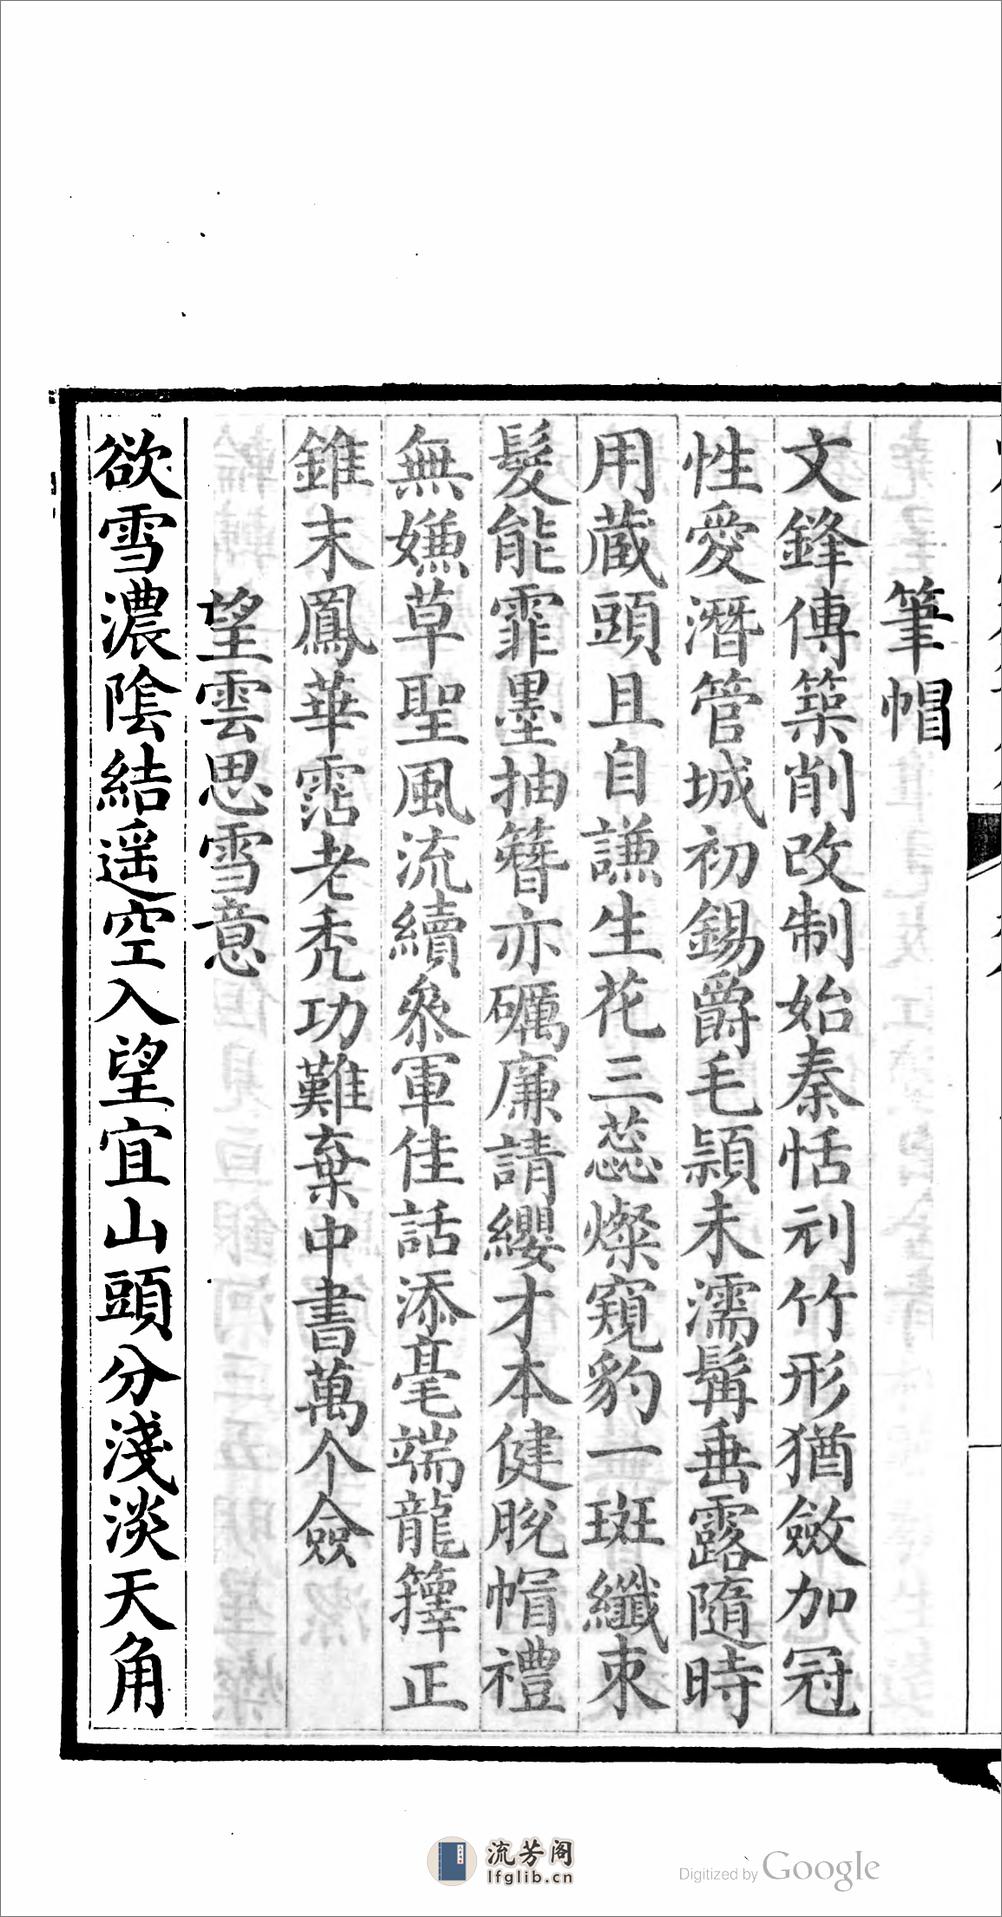 筆帽
文鋒傳築削改制始秦恬刓竹形猶斂加冠
性愛潛管城初錫爵毛穎未濡髯垂露隨時
用蔵頭且自謙生花三蕊燦窺豹一斑纖束
髮能霏墨抽簪亦礪廉請纓才本健脫帽禮
無嫌草聖風流續叅軍佳話添毫端龍籜正
錐末鳳華霑老禿功難棄中書萬个僉
望雲思雪意
欲雪濃陰結遥空入望宜山頭分淺淡天角
流芳阁
lfglib.cn
Digitized by Google